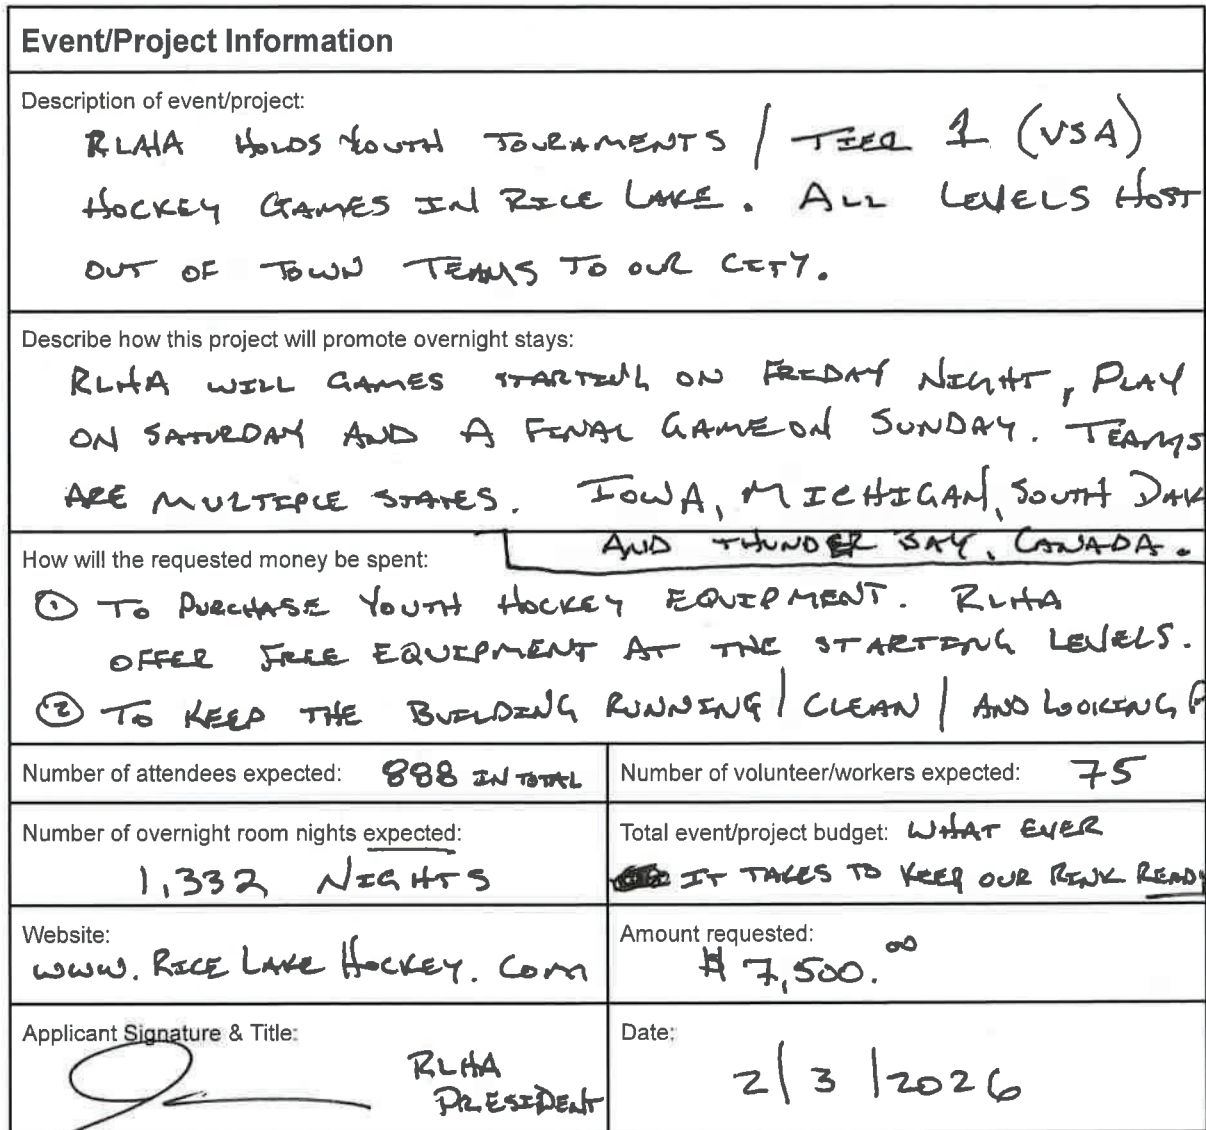 Event/Project Information
Description of event/project:
RLHA HOLDS YOUTH TOURAMENTS / TIER 1 (USA)
HOCKEY GAMES IN RICE LAKE. ALL LEVELS HOST
OUT OF TOWN TEAMS TO OUR CITY.
Describe how this project will promote overnight stays:
RLHA WILL GAMES STARTING ON FRIDAY NIGHT, PLAY
ON SATURDAY AND A FINAL GAME ON SUNDAY. TEAMS
ARE MULTIPLE STATES. IOWA, MICHIGAN, SOUTH DAK
AND THUNDER BAY, CANADA.
How will the requested money be spent:
① TO PURCHASE YOUTH HOCKEY EQUIPMENT. RLHA
OFFER FREE EQUIPMENT AT THE STARTING LEVELS.
② TO KEEP THE BUILDING RUNNING / CLEAN / AND LOOKING
Number of attendees expected: 888 IN TOTAL
Number of volunteer/workers expected: 75
Number of overnight room nights expected:
1,332 NIGHTS
Total event/project budget: WHAT EVER
IT TAKES TO KEEP OUR RINK READY
Website:
www. RICE LAKE HOCKEY. COM
Amount requested:
$ 7,500.00
Applicant Signature & Title:
RLHA
PRESIDENT
Date:
2/3/2026